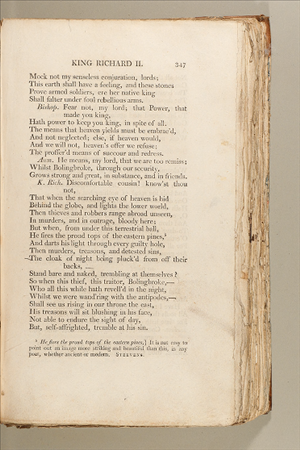 KING RICHARD II. 347
Mock not my senseless conjuration, lords;
This earth shall have a feeling, and these stones
Prove armed soldiers, ere her native king
Shall falter under foul rebellious arms.
Bishop. Fear not, my lord; that Power, that
made you king,
Hath power to keep you king, in spite of all.
The means that heaven yields must be embrac'd,
And not neglected; else, if heaven would,
And we will not, heaven's offer we refuse;
The proffer'd means of succour and redress.
Aum. He means, my lord, that we are too remiss;
Whilst Bolingbroke, through our security,
Grows strong and great, in substance, and in friends.
K. Rich. Discomfortable cousin! know'st thou
not,
That when the searching eye of heaven is hid
Behind the globe, and lights the lower world,
Then thieves and robbers range abroad unseen,
In murders, and in outrage, bloody here;
But when, from under this terrestrial ball,
He fires the proud tops of the eastern pines,*
And darts his light through every guilty hole,
Then murders, treasons, and detested sins,
The cloak of night being pluck'd from off their
backs,
Stand bare and naked, trembling at themselves?
So when this thief, this traitor, Bolingbroke,—
Who all this while hath revell'd in the night,
Whilst we were wand'ring with the antipodes,—
Shall see us rising in our throne the east,
His treasons will sit blushing in his face,
Not able to endure the sight of day,
But, self-affrighted, tremble at his sin.
* He fires the proud tops of the eastern pines,] It is not easy to
point out an image more striking and beautiful than this, in any
poet, whether ancient or modern. STEEVENS.